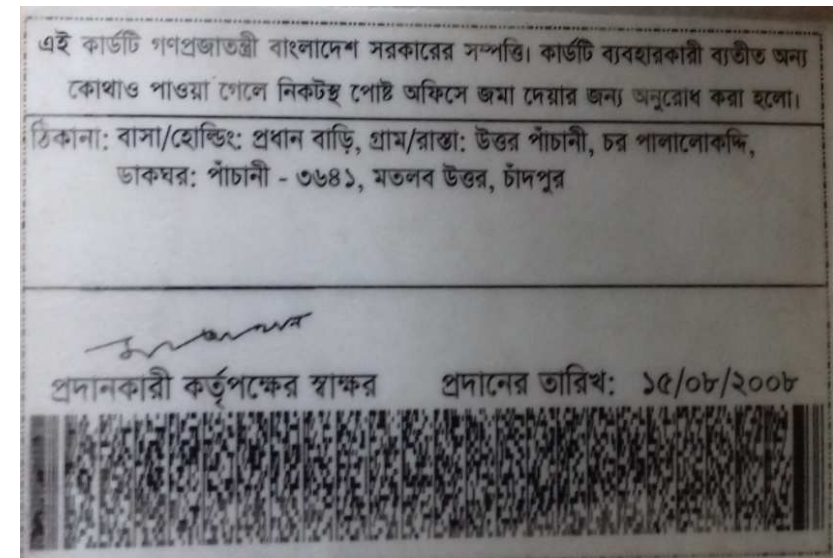 এই কার্ডটি গণপ্রজাতন্ত্রী বাংলাদেশ সরকারের সম্পত্তি। কার্ডটি ব্যবহারকারী ব্যতীত অন্য
কোথাও পাওয়া গেলে নিকটস্থ পোষ্ট অফিসে জমা দেয়ার জন্য অনুরোধ করা হলো।
ঠিকানা: বাসা/হোল্ডিং: প্রধান বাড়ি, গ্রাম/রাস্তা: উত্তর পাঁচানী, চর পালালোকদি,
ডাকঘর: পাঁচানী - ৩৬৪১, মতলব উত্তর, চাঁদপুর
প্রদানকারী কর্তৃপক্ষের স্বাক্ষর প্রদানের তারিখ: ১৫/০৮/২০০৮